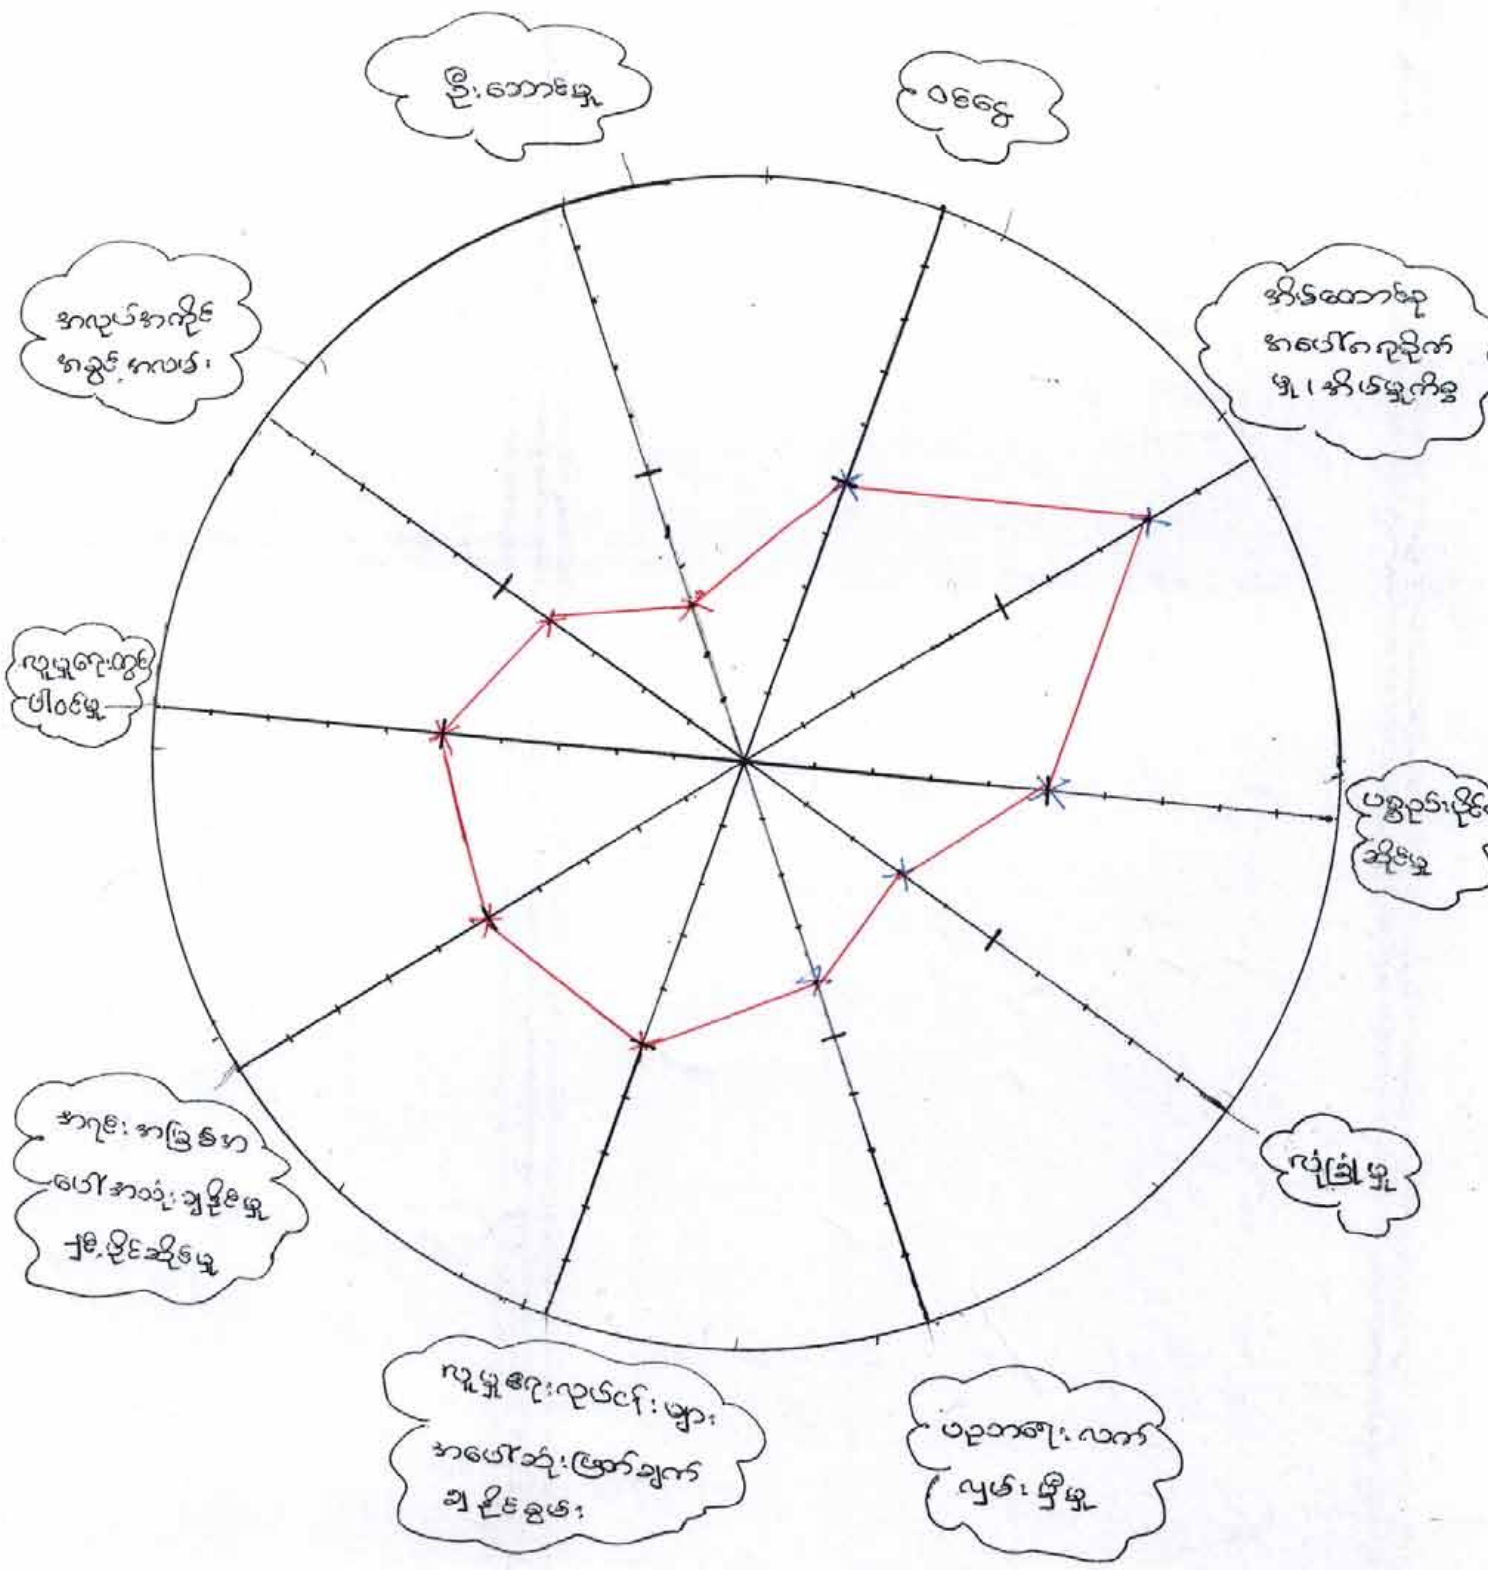 ဦးဆောင်မှု
ဝင်ငွေ
အိမ်ထောင်စု
အပေါ်ဂရုစိုက်
မှု၊ အိမ်မှုကိစ္စ
ပစ္စည်းပိုင်
ဆိုင်မှု
လုံခြုံမှု
ပညာရေး လက်
လှမ်းမှီမှု
လူမှုရေးလုပ်ငန်းများ
အပေါ်ဆုံးဖြတ်ချက်
ချနိုင်စွမ်း
အရင်းအမြစ်အ
ပေါ်အသုံးချနိုင်မှု
နှင့်ပိုင်ဆိုင်မှု
လူမှုရေးတွင်
ပါဝင်မှု
အလုပ်အကိုင်
အခွင့်အလမ်း